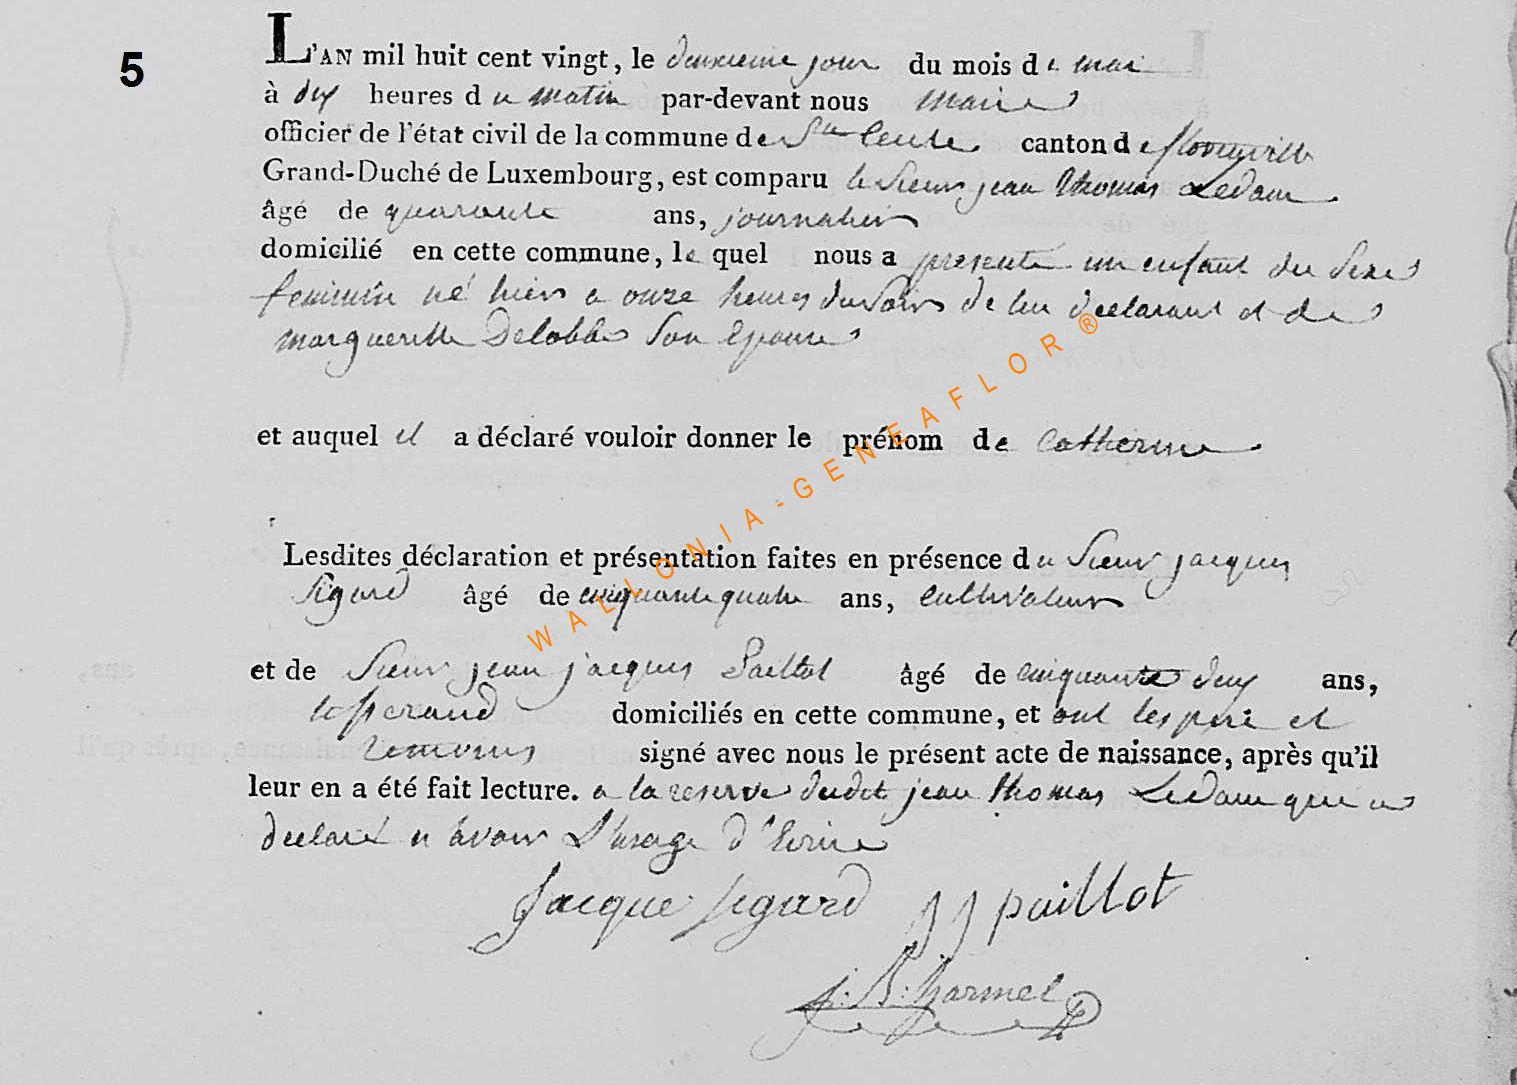 5
L'AN mil huit cent vingt, le deuxieme jour du mois de mai
à dix heures du matin par-devant nous maire
officier de l'état civil de la commune de Ste Cecile canton de florenville
Grand-Duché de Luxembourg, est comparu le Sieur jean thomas Ledam
âgé de quarante ans, journalier
domicilié en cette commune, le quel nous a presenté un enfant du Sexe
feminin né hier a onze heures du Soir de lui declarant et de
margueritte Delobbe Son Epouse
et auquel il a déclaré vouloir donner le prénom de Catherine
Lesdites déclaration et présentation faites en présence du Sieur jacques
Sigard âgé de cinquante quatre ans, cultivateur
et de Sieur jean jacques Paillot âgé de cinquante deux ans,
domiciliés en cette commune, et ont les pere et
temoins signé avec nous le présent acte de naissance, après qu'il
leur en a été fait lecture. a la reserve dudit jean thomas Ledam que a
declaré n avoir L'usage d'Ecrire
Jacque sigard JJ paillot
j: B: harmel
WALLONIA-GENEAFLOR®